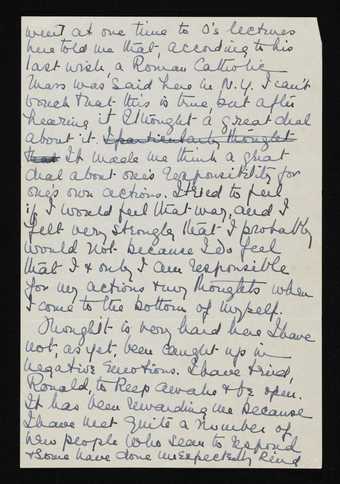 went at one time to O's lectures
here told me that, according to his
last wish, a Roman Catholic
Mass was said here in N.Y. I can't
vouch that this is true but after
hearing it I thought a great deal
about it. I particularly thought
that It made me think a great
deal about one's responsibility for
one's own actions. I tried to feel
if I would feel that way, and I
felt very strongly that I probably
would not because I do feel
that I & only I am responsible
for my actions & my thoughts when
I come to the bottom of myself.
Though it is very hard here I have
not, as yet, been caught up in
negative emotions. I have tried,
Ronald, to keep awake & be open.
It has been rewarding me because
I have met quite a number of
new people who seem to respond
& some have done unexpectedly kind